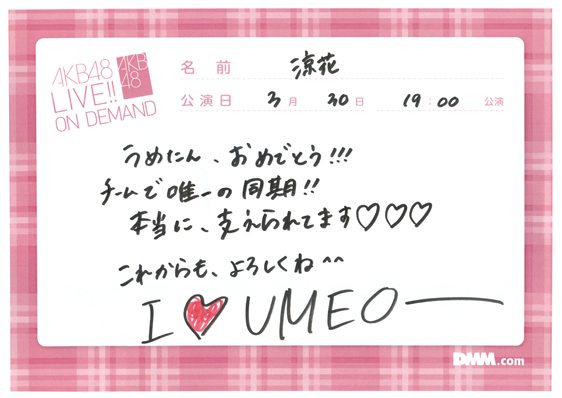 AKB48
LIVE!!
ON DEMAND
AKB
48
名前 涼花
公演日 3月 30日 19:00 公演
うめたん、おめでとう!!!
チームで唯一の同期!!
本当に、支えられてます♡♡♡
これからも、よろしくね^^
I ♥ UMEO——
DMM.com